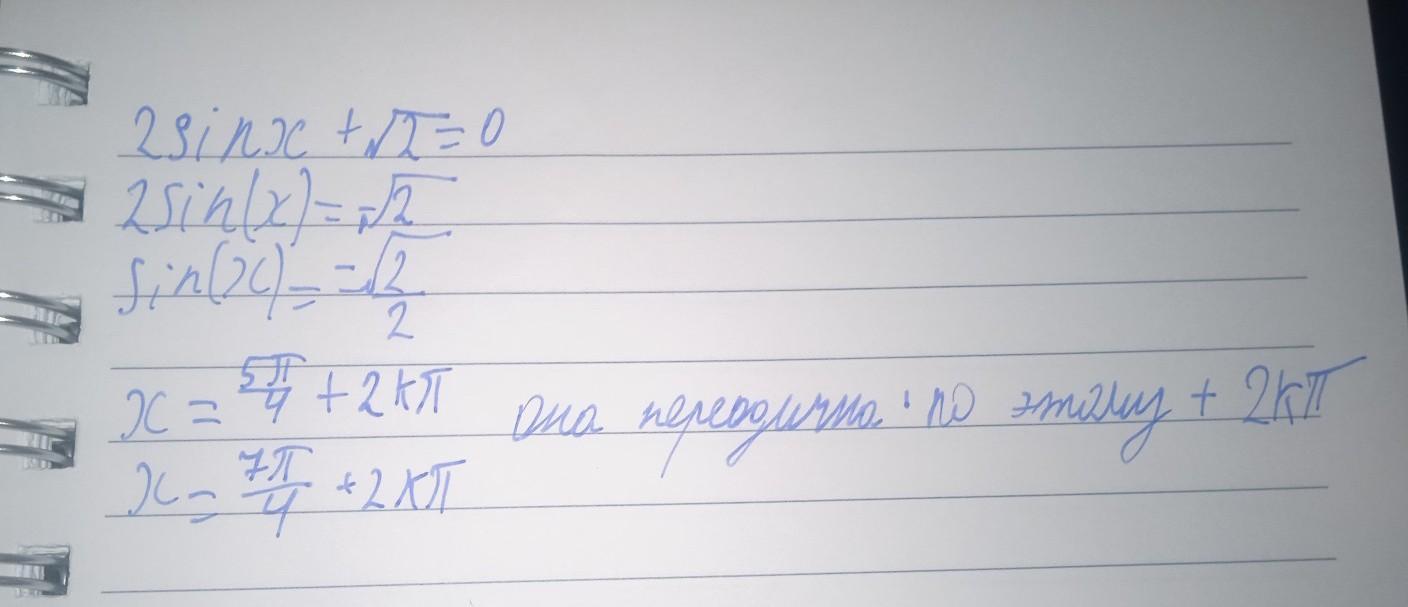 2sinx + √2 = 0
2sin(x) = -√2
sin(x) = -√2/2
x = 5π/4 + 2кπ она переодична по этаму + 2кπ
x = 7π/4 + 2кπ